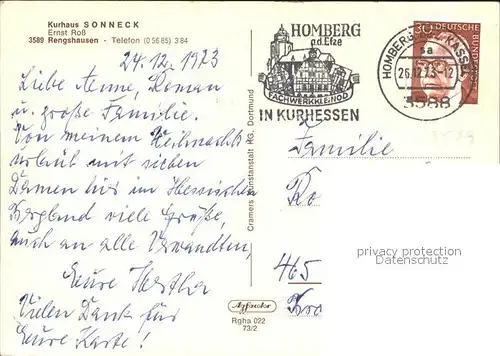 Kurhaus SONNECK
Ernst Roß
3589 Rengshausen - Telefon (0 56 85) 3 84
24.12.1973
Liebe Anne, Roman
u. große Familie.
Von meinem Weihnachts
urlaub mit sieben
Damen hier im Hessischen
Bergland viele Grüße,
auch an alle Verwandten,
Eure Hertha
Vielen Dank für
Eure Karte!
Cramers Kunstanstalt KG, Dortmund
Agfacolor
Rgha 022
73/2
HOMBERG
a.d. Efze
FACHWERKKLEINOD
IN KURHESSEN
HOMBERG
sa
26.12.73-12
3588
30
DEUTSCHE BUNDESPOST
Familie
Ro
465
privacy protection
privacy protection